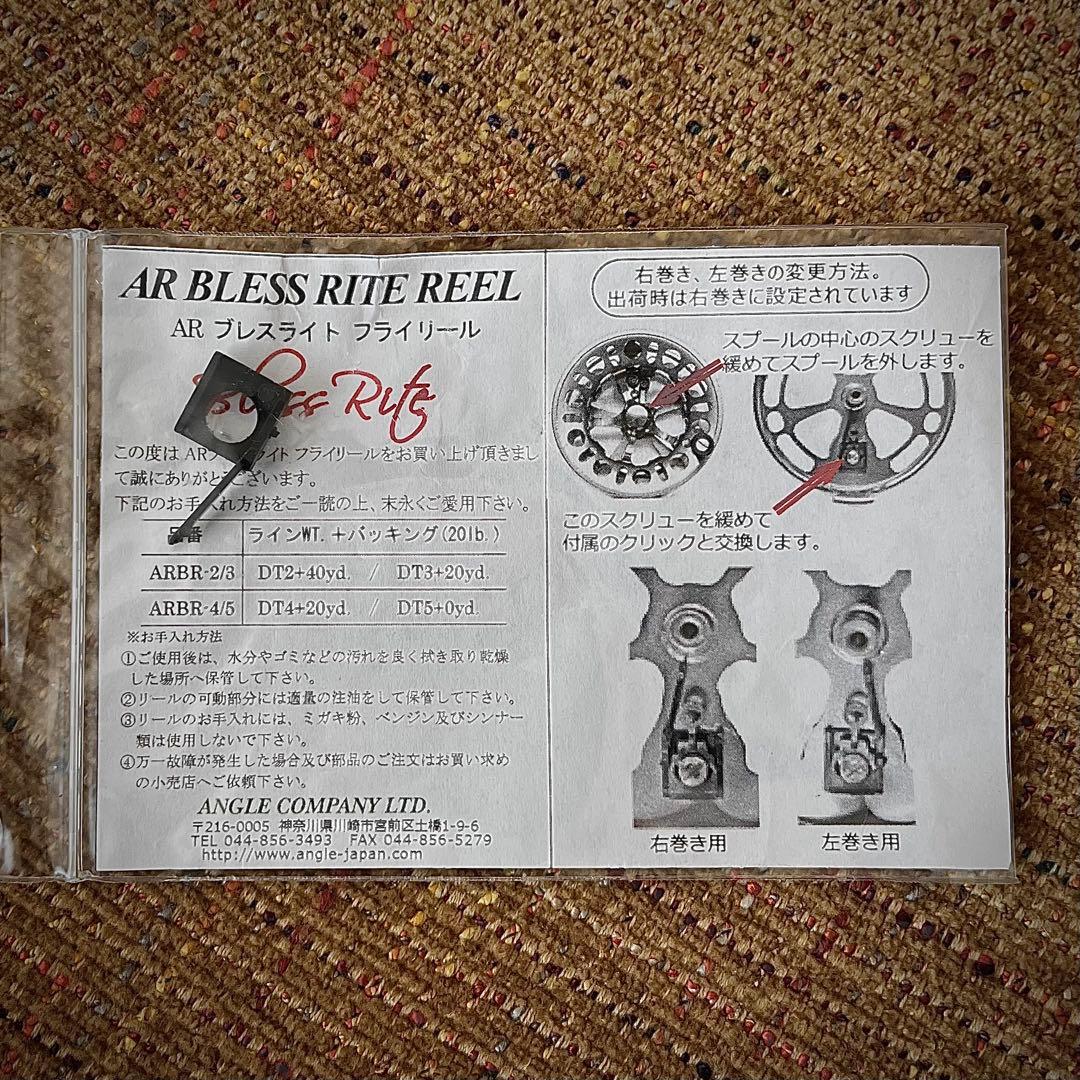 AR BLESS RITE REEL
AR ブレスライト フライリール
ss Rite
この度は AR ライト フライリールをお買い上げ頂きまし
て誠にありがとございます。
下記のお手入れ方法をご一読の上、末永くご愛用下さい。
品番 ラインWT.+バッキング(20lb.)
ARBR-2/3 DT2+40yd. / DT3+20yd.
ARBR-4/5 DT4+20yd. / DT5+0yd.
※お手入れ方法
①ご使用後は、水分やゴミなどの汚れを良く拭き取り乾燥
した場所へ保管して下さい。
②リールの可動部分には適量の注油をして保管して下さい。
③リールのお手入れには、ミガキ粉、ベンジン及びシンナー
類は使用しないで下さい。
④万一故障が発生した場合及び部品のご注文はお買い求め
の小売店へご依頼下さい。
ANGLE COMPANY LTD.
〒216-0005 神奈川県川崎市宮前区土橋1-9-6
TEL 044-856-3493 FAX 044-856-5279
http://www.angle-japan.com
右巻き、左巻きの変更方法。
出荷時は右巻きに設定されています
スプールの中心のスクリューを
緩めてスプールを外します。
このスクリューを緩めて
付属のクリックと交換します。
右巻き用
左巻き用